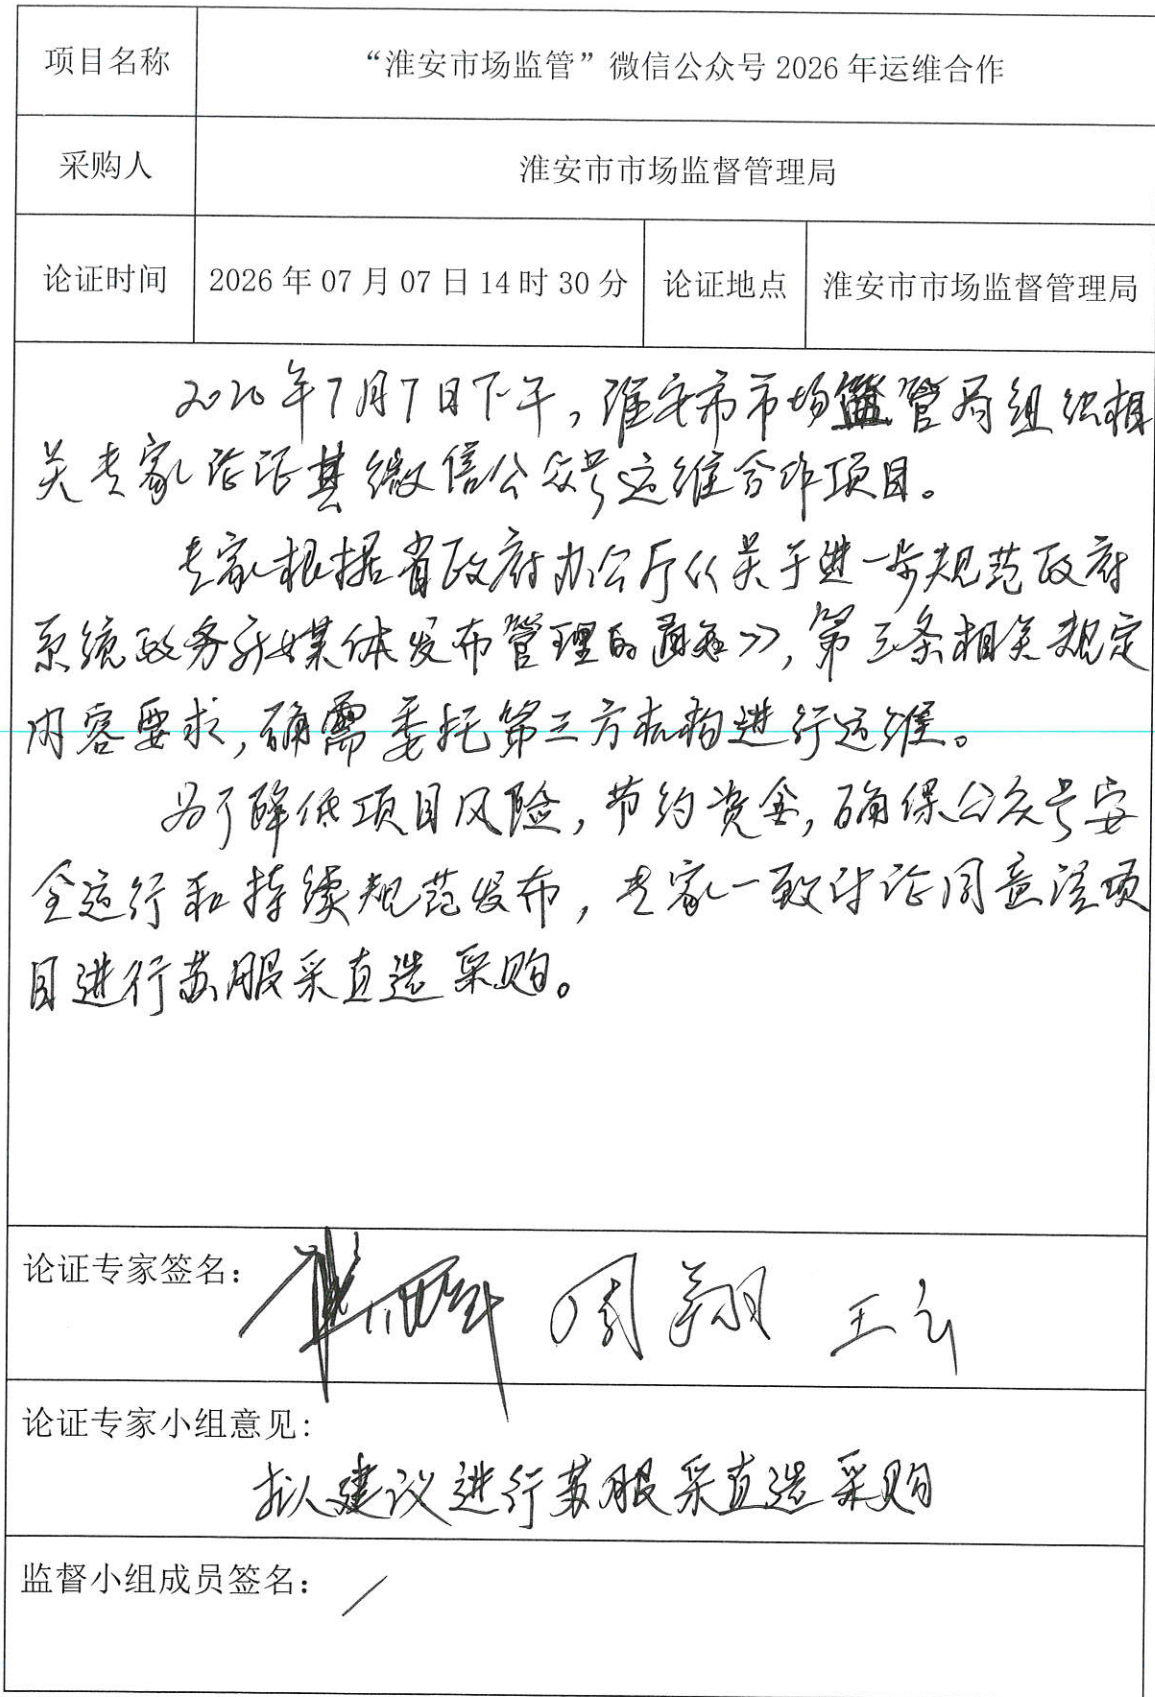 项目名称 “淮安市场监管”微信公众号 2026 年运维合作
采购人 淮安市市场监督管理局
论证时间 2026 年 07 月 07 日 14 时 30 分 论证地点 淮安市市场监督管理局
2026年7月7日下午，淮安市市场监管局组织相
关专家论证其微信公众号运维合作项目。
专家根据省政府办公厅《关于进一步规范政府
系统政务新媒体发布管理的通知》，第三条相关规定
内容要求，确需委托第三方机构进行运维。
为了降低项目风险，节约资金，确保公众号安
全运行和持续规范发布，专家一致讨论同意该项
目进行苏服采直选采购。
论证专家签名： 周翔 王云
论证专家小组意见：
拟建议进行苏服采直选采购
监督小组成员签名： /